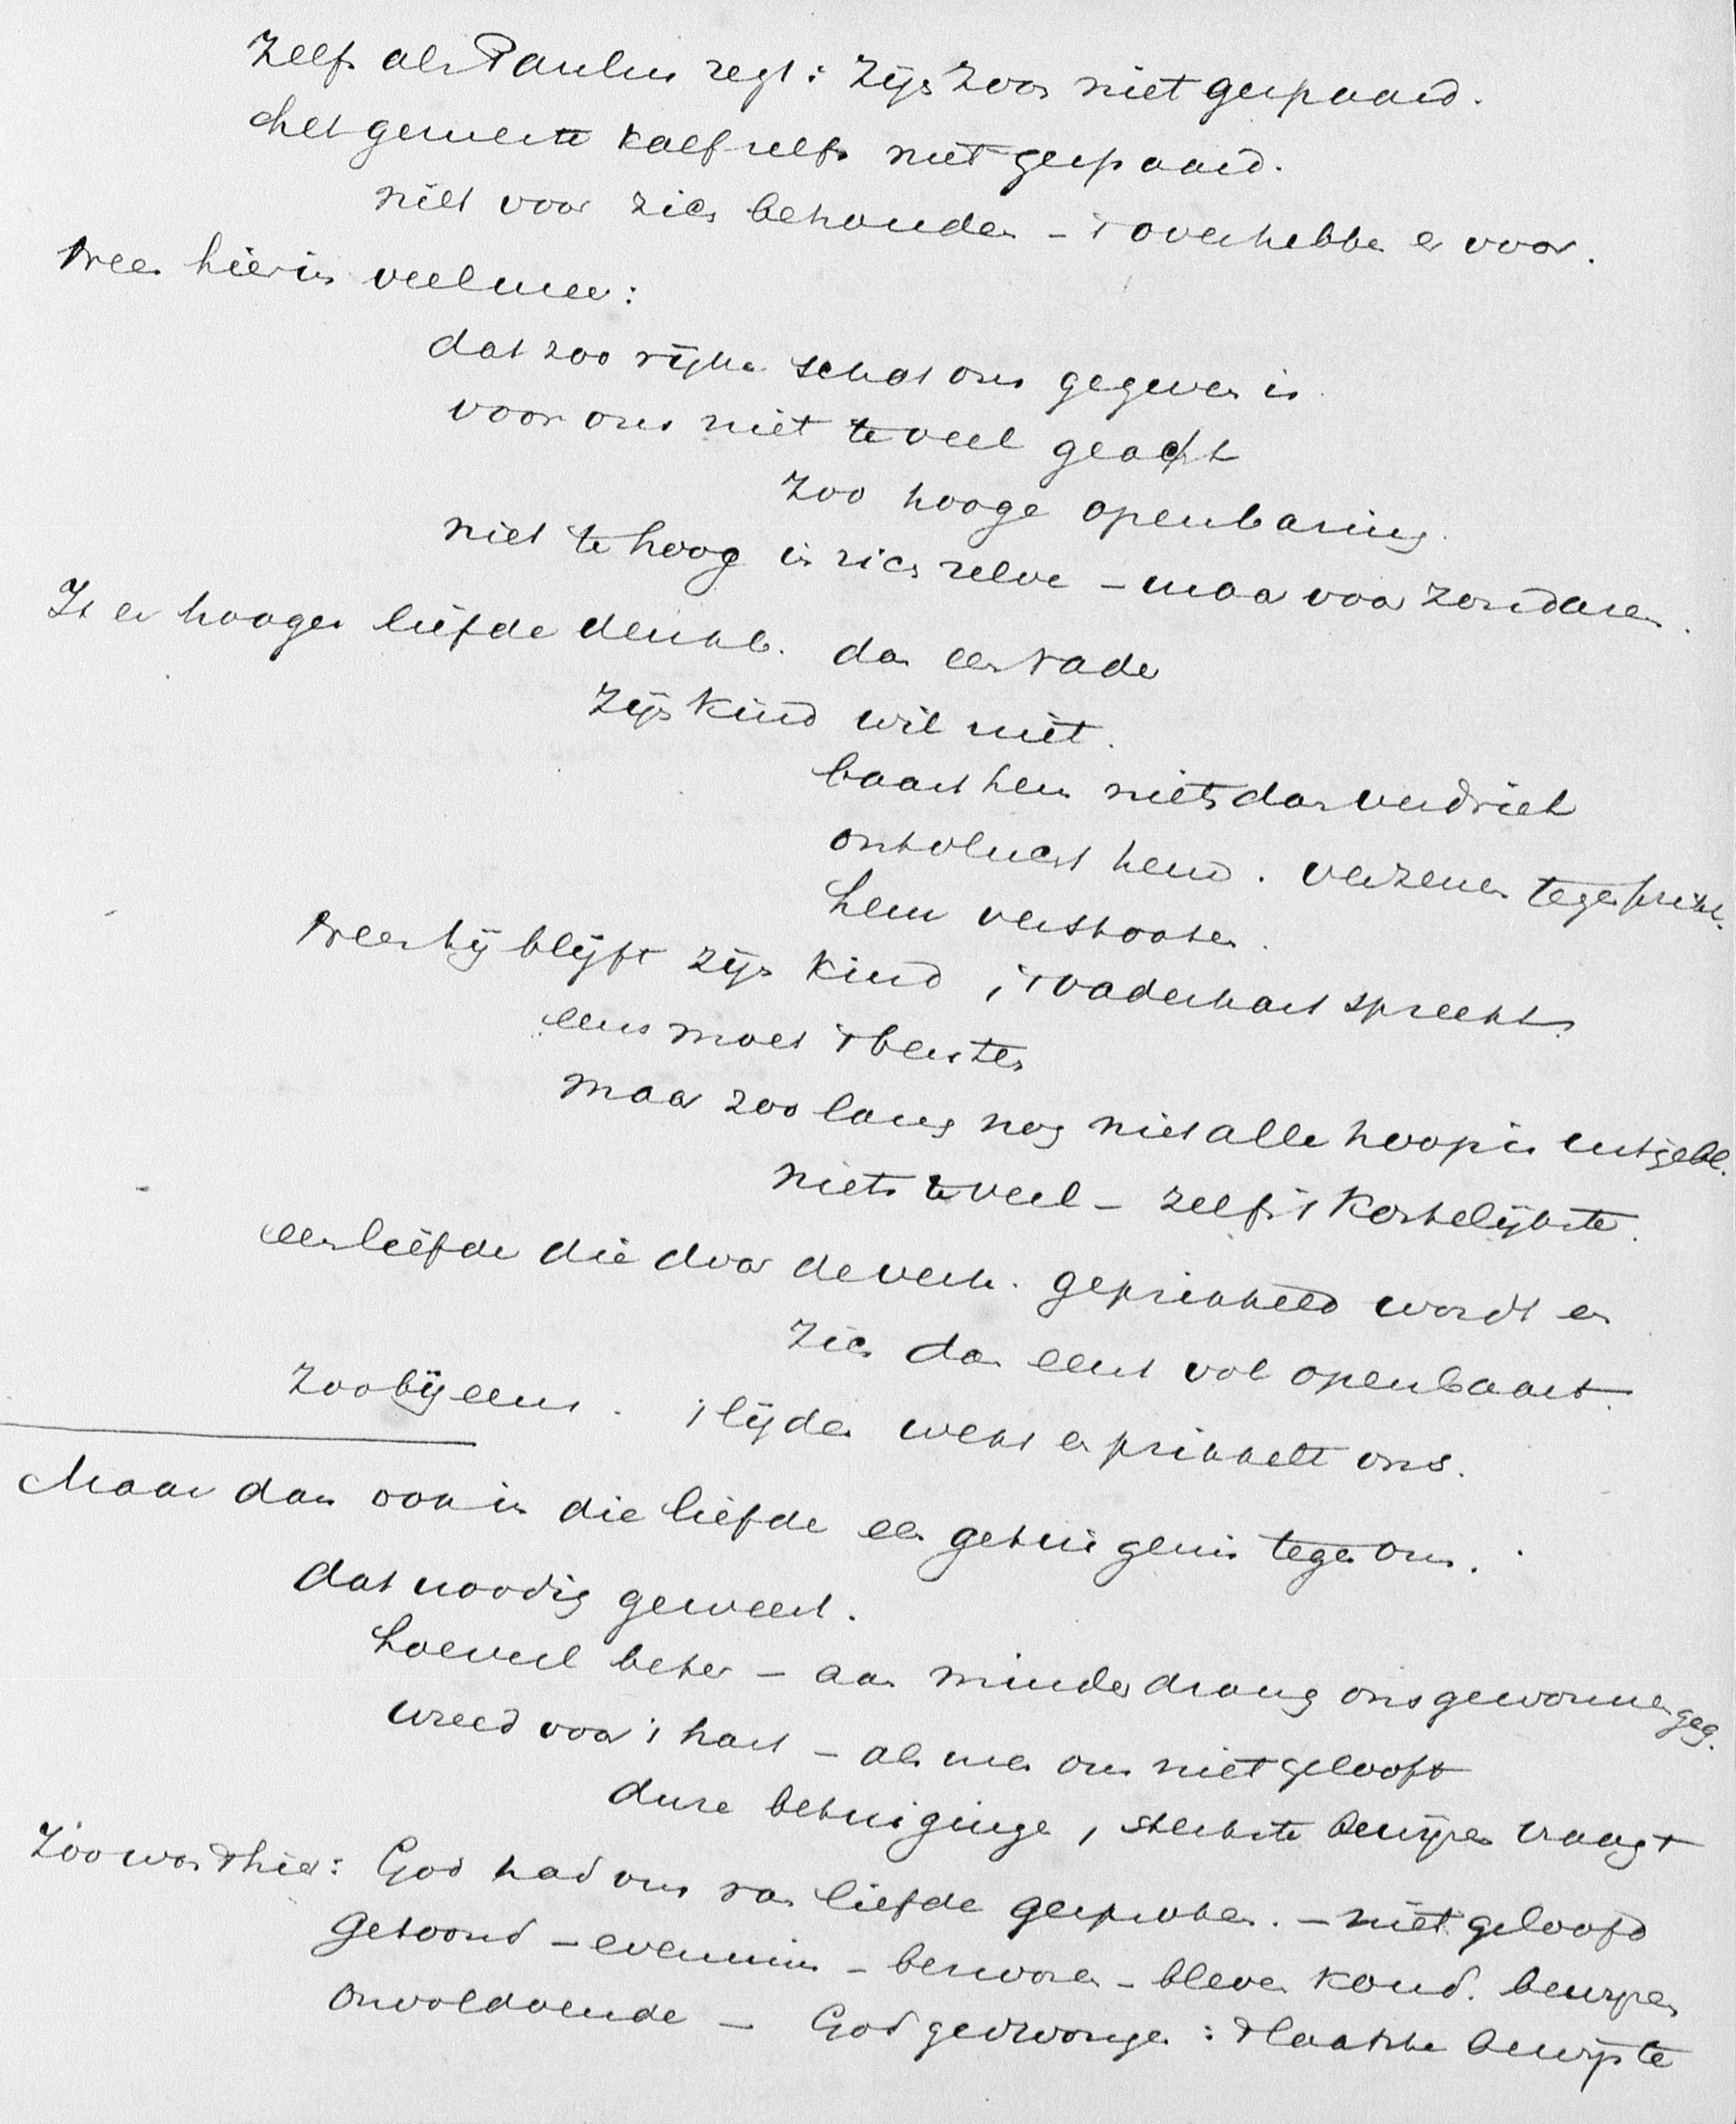 Zelfs als Paulus zegt: Zijn Zoon niet gespaard.
Het gemeste kalf zelfs niet gespaard.
niet voor zich behouden – 't overhebben er voor.
Neen hierin veelmeer:
dat zoo rijken schat ons gegeven is.
voor ons niet te veel geacht
Zoo hooge openbaring.
niet te hoog in zich zelve – maar voor zondaren.
Is er hooger liefde denkb. dan een Vader
Zijn kind wil niet.
baart hem niets dan verdriet
ontvlucht hem. verzenen tegen prikk.
hem verstooten.
Neen hij blijft zijn kind, 't vaderhart spreekt.
eens moet 't bersten
maar zoo lang nog niet alle hoop is uitgebl.
niets te veel – zelfs 't kostelijkste.
een liefde die door de verh. geprikkeld wordt en
zich dan eerst vol openbaart.
Zoo bij eens. 't lijden wekt en prikkelt ons.
Maar dan ook in die liefde een getuigenis tegen ons.
dat noodig geweest.
hoeveel beter – aan minder drang ons gewonnen geg.
wreed voor 't hart – als men ons niet gelooft
dure betuigingen, sterkste bewijzen vraagt
Zoo was 't hier: God had ons van liefde gesproken. – niet geloofd
getoond – evenmin – bezworen – bleven koud. bewijzen
onvoldoende – God gedwongen: 't laatste bewijs te